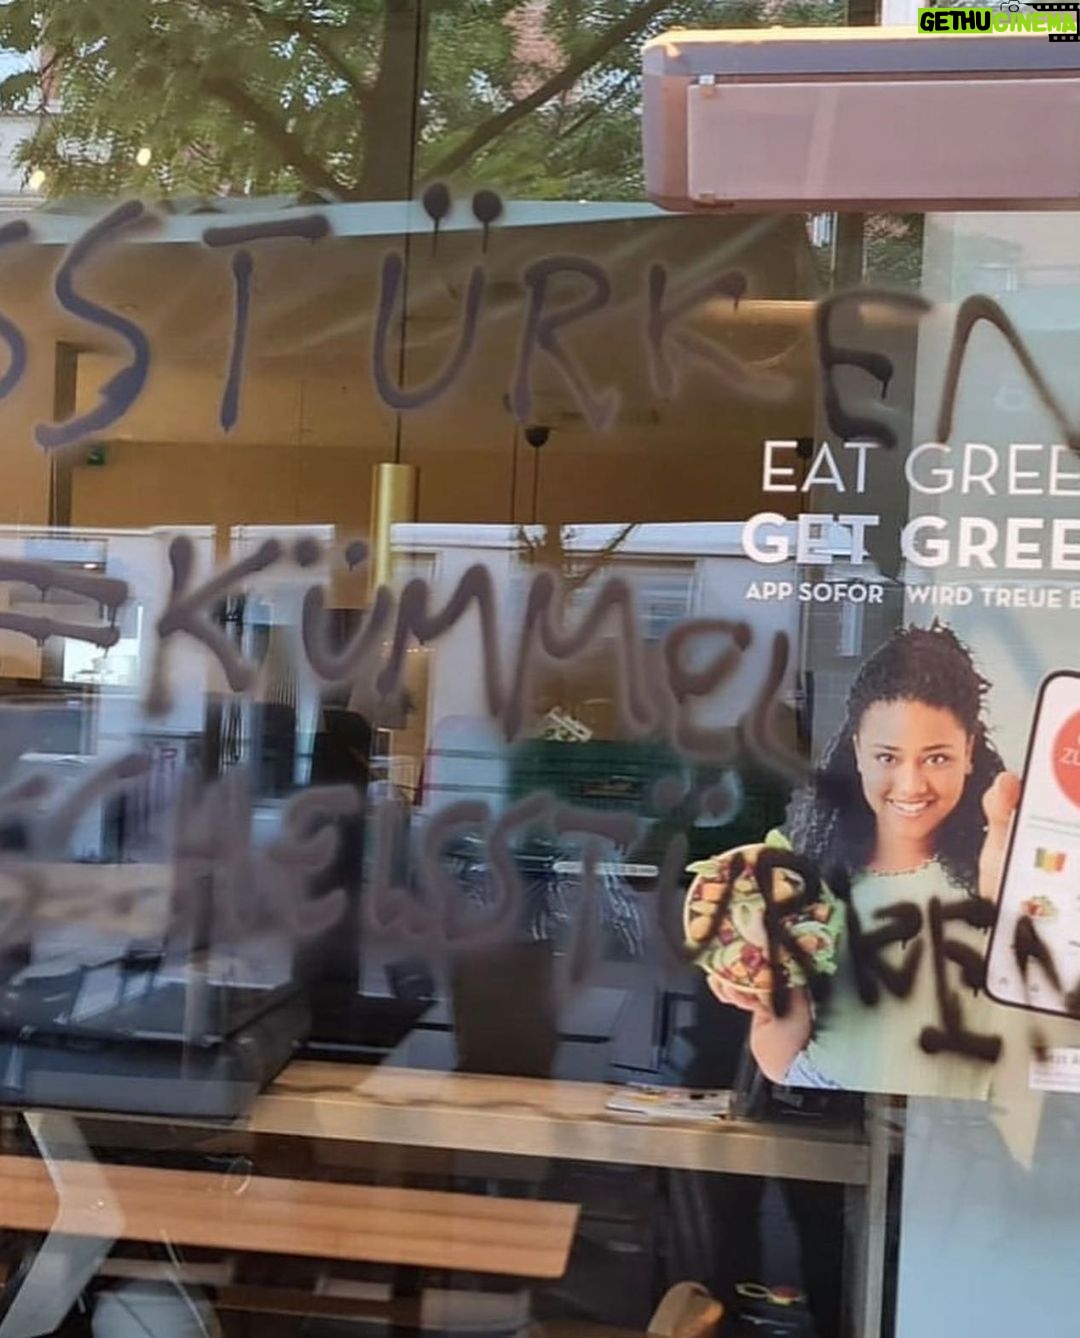 GETHUCINEMA
SSTÜRKEN
EAT GREE
GET GREE
APP SOFOR WIRD TREUE B
=KÜMMEL
SCHEISSTÜRKEN